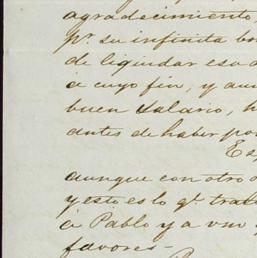 agradecimiento,
pr. su infinita bon
de liquidar esa d
á cuyo fin, y aun
buen salario, h
antes de haber por
Es
aunque con otro o
y esto es lo qe. trat
á Pablo y a vm
favores-